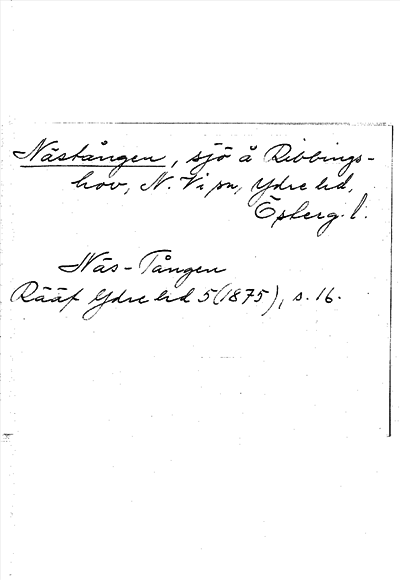 Nästången, sjö å Ribbings-
hov, N. Vi sn, Ydre hd,
Österg. l.
Näs-Tången
Rääf Ydre hd 5(1875), s. 16.